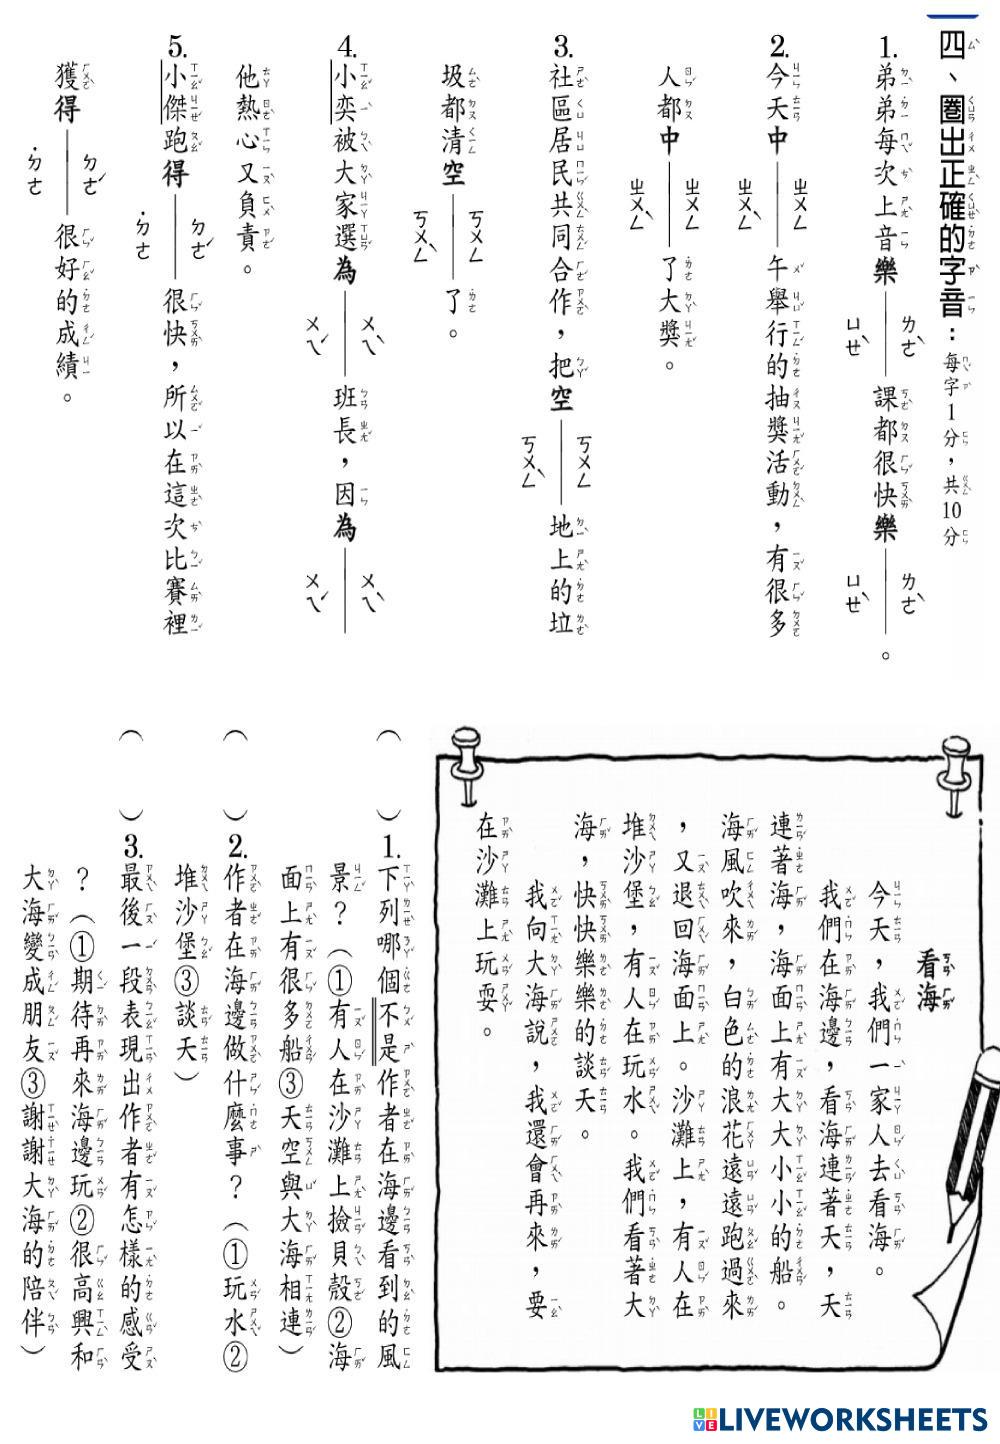 四、圈出正確的字音：每字1分，共10分
1.弟弟每次上音樂 ㄌㄜˋ ㄩㄝˋ 課都很快樂 ㄌㄜˋ ㄩㄝˋ 。
2.今天中 ㄓㄨㄥ ㄓㄨㄥˋ 午舉行的抽獎活動，有很多
人都中 ㄓㄨㄥ ㄓㄨㄥˋ 了大獎。
3.社區居民共同合作，把空 ㄎㄨㄥ ㄎㄨㄥˋ 地上的垃
圾都清空 ㄎㄨㄥ ㄎㄨㄥˋ 了。
4.小奕被大家選為 ㄨㄟˊ ㄨㄟˋ 班長，因為 ㄨㄟˊ ㄨㄟˋ
他熱心又負責。
5.小傑跑得 ㄉㄜˊ ˙ㄉㄜ 很快，所以在這次比賽裡
獲得 ㄉㄜˊ ˙ㄉㄜ 很好的成績。
看海
今天，我們一家人去看海。
我們在海邊，看海連著天，天
連著海，海面上有大大小小的船。
海風吹來，白色的浪花遠遠跑過來
，又退回海面上。沙灘上，有人在
堆沙堡，有人在玩水。我們看著大
海，快快樂樂的談天。
我向大海說，我還會再來，要
在沙灘上玩耍。
（　）1.下列哪個不是作者在海邊看到的風
景？（①有人在沙灘上撿貝殼②海
面上有很多船③天空與大海相連）
（　）2.作者在海邊做什麼事？（①玩水②
堆沙堡③談天）
（　）3.最後一段表現出作者有怎樣的感受
？（①期待再來海邊玩②很高興和
大海變成朋友③謝謝大海的陪伴）
LIVEWORKSHEETS